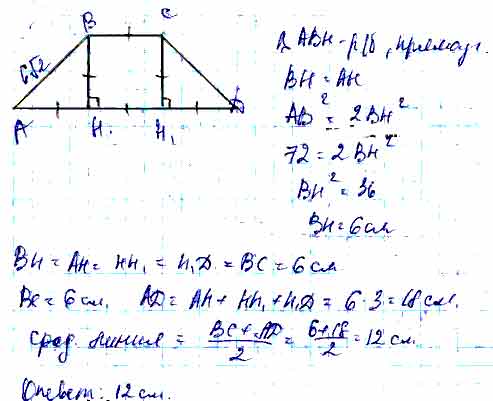 B C
6√2
A H H₁ D
Δ ABH - р/б, прямоуг.
BH = AH
AB² = 2BH²
72 = 2BH²
BH² = 36
BH = 6 см
BH = AH = HH₁ = H₁D = BC = 6 см
BC = 6 см, AD = AH + HH₁ + H₁D = 6·3 = 18 см.
сред. линия = (BC + AD)/2 = (6+18)/2 = 12 см
Ответ: 12 см.